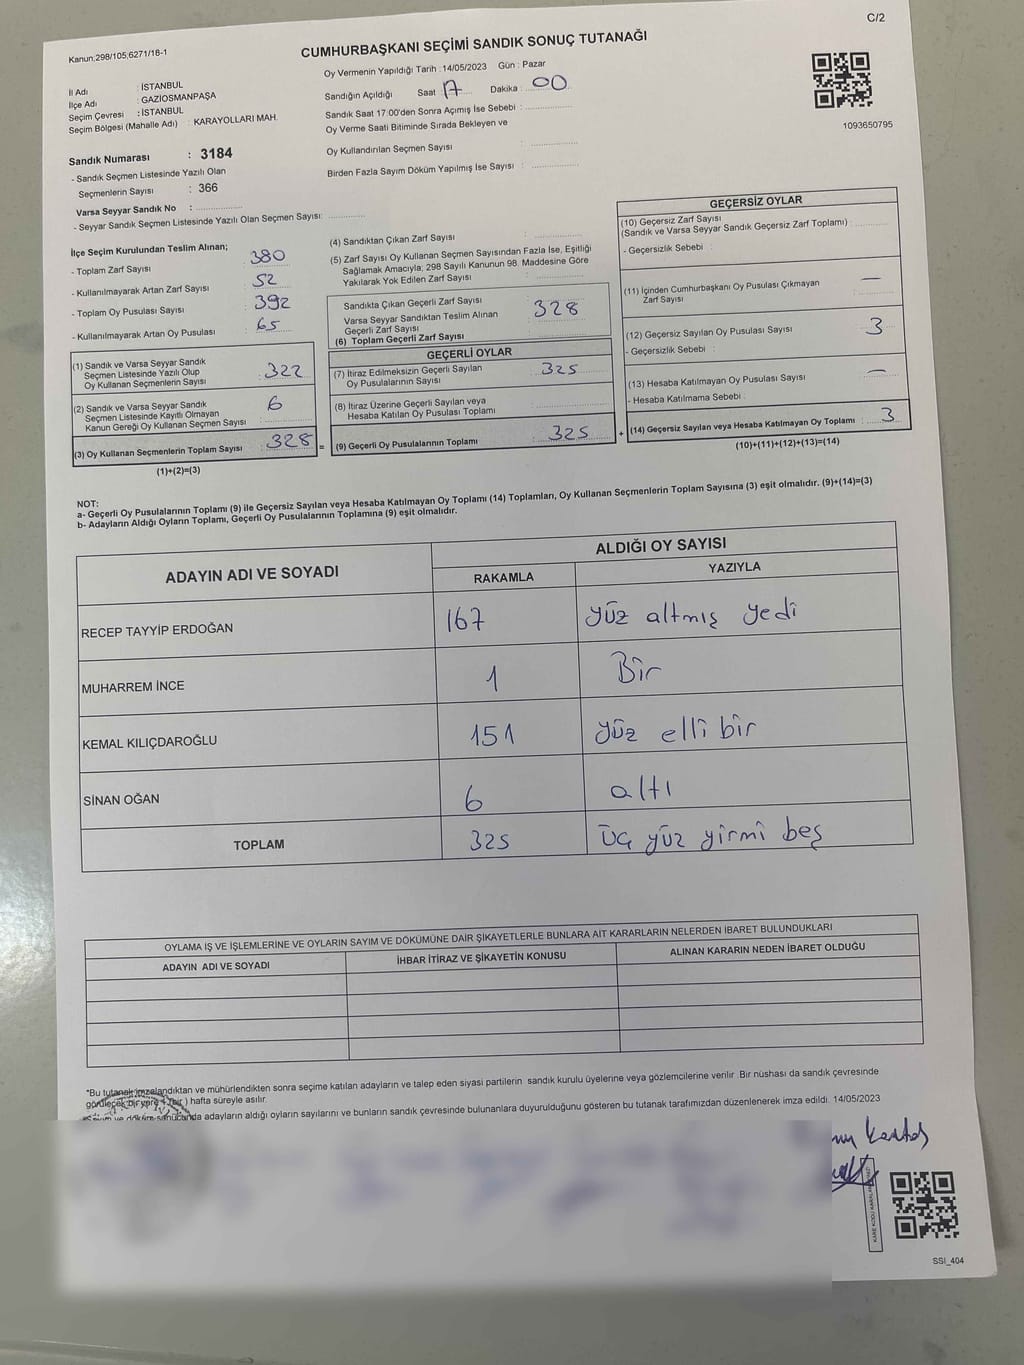 C/2
Kanun:298/105,6271/16-1
CUMHURBAŞKANI SEÇİMİ SANDIK SONUÇ TUTANAĞI
Oy Vermenin Yapıldığı Tarih : 14/05/2023 Gün : Pazar
İl Adı : İSTANBUL
İlçe Adı : GAZİOSMANPAŞA
Seçim Çevresi : İSTANBUL
Seçim Bölgesi (Mahalle Adı) : KARAYOLLARI MAH.
Sandığın Açıldığı Saat 17 Dakika : 00
Sandık Saat 17:00'den Sonra Açımış İse Sebebi :
Oy Verme Saati Bitiminde Sırada Bekleyen ve
Oy Kullandırılan Seçmen Sayısı :
Birden Fazla Sayım Döküm Yapılmış İse Sayısı :
1093650795
Sandık Numarası : 3184
- Sandık Seçmen Listesinde Yazılı Olan
Seçmenlerin Sayısı : 366
Varsa Seyyar Sandık No :
- Seyyar Sandık Seçmen Listesinde Yazılı Olan Seçmen Sayısı:
İlçe Seçim Kurulundan Teslim Alınan;
- Toplam Zarf Sayısı 380
- Kullanılmayarak Artan Zarf Sayısı 52
- Toplam Oy Pusulası Sayısı 392
- Kullanılmayarak Artan Oy Pusulası 65
(1) Sandık ve Varsa Seyyar Sandık
Seçmen Listesinde Yazılı Olup
Oy Kullanan Seçmenlerin Sayısı : 322
(2) Sandık ve Varsa Seyyar Sandık
Seçmen Listesinde Kayıtlı Olmayan
Kanun Gereği Oy Kullanan Seçmen Sayısı : 6
(3) Oy Kullanan Seçmenlerin Toplam Sayısı : 328
(1)+(2)=(3)
(4) Sandıktan Çıkan Zarf Sayısı :
(5) Zarf Sayısı Oy Kullanan Seçmen Sayısından Fazla İse, Eşitliği
Sağlamak Amacıyla, 298 Sayılı Kanunun 98. Maddesine Göre
Yakılarak Yok Edilen Zarf Sayısı :
Sandıkta Çıkan Geçerli Zarf Sayısı
Varsa Seyyar Sandıktan Teslim Alınan
Geçerli Zarf Sayısı
(6) Toplam Geçerli Zarf Sayısı : 328
GEÇERLİ OYLAR
(7) İtiraz Edilmeksizin Geçerli Sayılan
Oy Pusulalarının Sayısı : 325
(8) İtiraz Üzerine Geçerli Sayılan veya
Hesaba Katılan Oy Pusulası Toplamı :
= (9) Geçerli Oy Pusulalarının Toplamı : 325
GEÇERSİZ OYLAR
(10) Geçersiz Zarf Sayısı
(Sandık ve Varsa Seyyar Sandık Geçersiz Zarf Toplamı) :
- Geçersizlik Sebebi :
(11) İçinden Cumhurbaşkanı Oy Pusulası Çıkmayan
Zarf Sayısı : —
(12) Geçersiz Sayılan Oy Pusulası Sayısı : 3
- Geçersizlik Sebebi :
(13) Hesaba Katılmayan Oy Pusulası Sayısı : —
- Hesaba Katılmama Sebebi :
+ (14) Geçersiz Sayılan veya Hesaba Katılmayan Oy Toplamı : 3
(10)+(11)+(12)+(13)=(14)
NOT:
a- Geçerli Oy Pusulalarının Toplamı (9) ile Geçersiz Sayılan veya Hesaba Katılmayan Oy Toplamı (14) Toplamları, Oy Kullanan Seçmenlerin Toplam Sayısına (3) eşit olmalıdır. (9)+(14)=(3)
b- Adayların Aldığı Oyların Toplamı, Geçerli Oy Pusulalarının Toplamına (9) eşit olmalıdır.
ADAYIN ADI VE SOYADI
ALDIĞI OY SAYISI
RAKAMLA YAZIYLA
RECEP TAYYİP ERDOĞAN 167 yüz altmış yedi
MUHARREM İNCE 1 Bir
KEMAL KILIÇDAROĞLU 151 yüz elli bir
SİNAN OĞAN 6 altı
TOPLAM 325 üç yüz yirmi beş
OYLAMA İŞ VE İŞLEMLERİNE VE OYLARIN SAYIM VE DÖKÜMÜNE DAİR ŞİKAYETLERLE BUNLARA AİT KARARLARIN NELERDEN İBARET BULUNDUKLARI
ADAYIN ADI VE SOYADI İHBAR İTİRAZ VE ŞİKAYETİN KONUSU ALINAN KARARIN NEDEN İBARET OLDUĞU
*Bu tutanak imzalandıktan ve mühürlendikten sonra seçime katılan adayların ve talep eden siyasi partilerin sandık kurulu üyelerine veya gözlemcilerine verilir .Bir nüshası da sandık çevresinde
görülecek bir yere 1 (bir) hafta süreyle asılır.
Sayım ve döküm sonucunda adayların aldığı oyların sayılarını ve bunların sandık çevresinde bulunanlara duyurulduğunu gösteren bu tutanak tarafımızdan düzenlenerek imza edildi. 14/05/2023
SSI_404